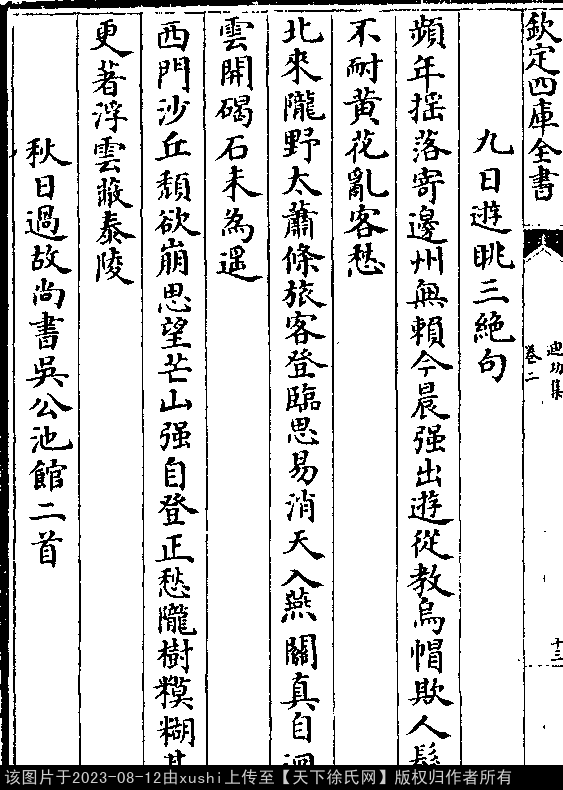 欽定四庫全書
迪功集
卷二
十三
九日遊眺三絶句
頻年揺落寄邊州無賴今晨强出遊從教烏帽欺人髩
不耐黄花亂客愁
北來隴野太蕭條旅客登臨思易消天入燕關真自迥
雲開碣石未為遥
西門沙丘頽欲崩思望芒山强自登正愁隴樹糢糊甚
更著浮雲蔽泰陵
秋日過故尚書吳公池館二首
该图片于2023-08-12由xushi上传至【天下徐氏网】版权归作者所有